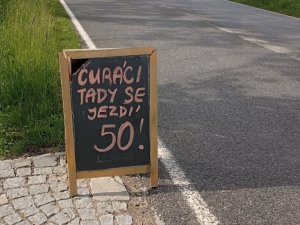 ČURÁCI
TADY SE
JEZDÍ
50!